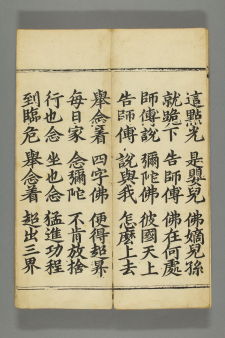 這點光 是嬰兒 佛嫡兒孫
就跪下 告師傅 佛在何處
師傅說 彌陀佛 彼國天上
告師傅 說與我 怎麼上去
舉念着 四字佛 便得超昇
每日家 念彌陀 不肯放捨
行也念 坐也念 猛進功程
到臨危 舉念着 超出三界